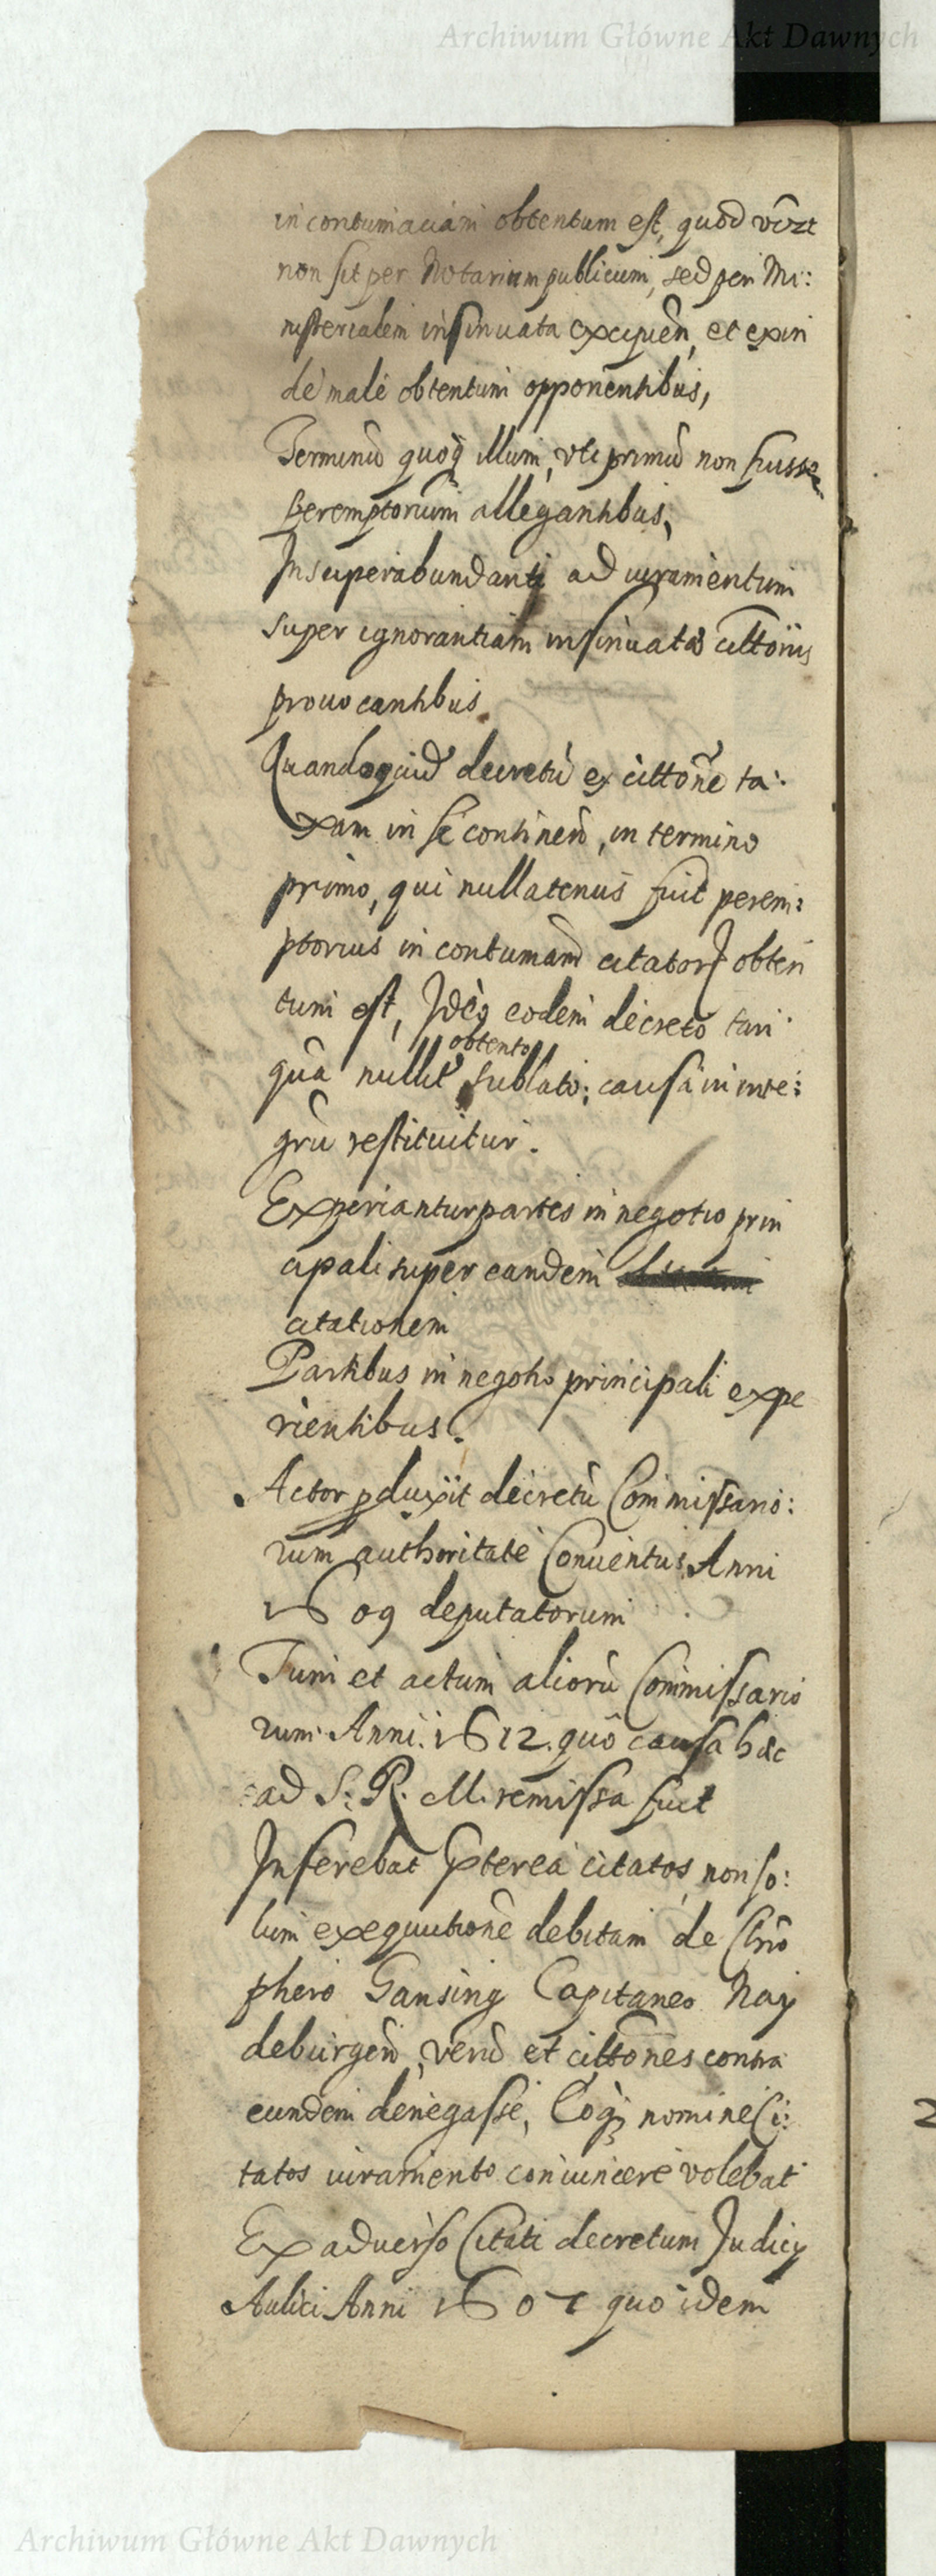 Archiwum Główne Akt Dawnych
in contumaciam obtentum est, quod
non sit per Notarium publicum, sed per Mi:
nisterialem insinuata excipien̄, et exin
de male obtentum opponentibus,
Terminū quoq̨ illum, uti primū non fuisse
Peremptorium allegantibus,
In superabundanti ad iuramentum
super ignorantiam insinuatae citt̄onis
prouocantibus.
Quandoquid̄ decretū ex citt̄one ta:
xam in se continen̄, in termino
primo, qui nullatenus fuit perem:
ptorius in contumam̄ citatorꝝ obten
tum est, Ideoq̨ eodem decreto tan
quā nullit̄ obtento sublato; causa in inte:
grū restituitur.
Experiantur partes in negotio prin
cipali super eandem
citationem
Partibus in negotio principali expe
rientibus.
Actor ꝓduxit decretū Commissario:
rum authoritate Conuentus Anni
1609 deputatorum
Tum et actum aliorū Commissario
rum Anni. 1612. quō causa haec
ad S. R. M. remissa fuit
Inferebat p̄terea citatos non so:
lum exequutionē debitam de Chrō
phero Gansing Capitaneo Ney
deburgen̄, verū et citt̄ones contra
eundem denegasse, Eoq̨ nomine Ci:
tatos iuramento conuincere volebat
Ex aduerso Citati decretum Judicij
Aulici Anni 1607 quo idem
Archiwum Główne Akt Dawnych